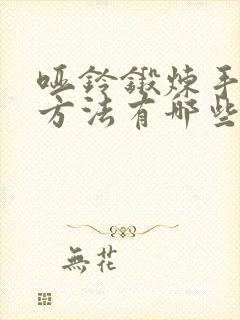 哑铃锻炼手
方法有哪些
無花